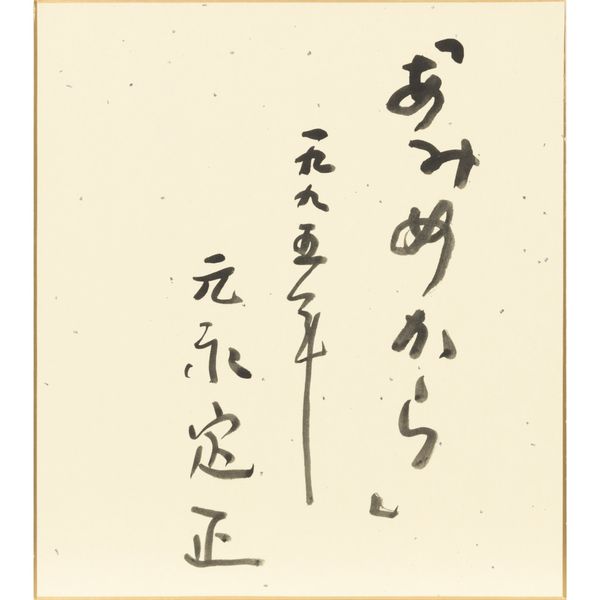 「あみめから」
一九九五年
元永定正